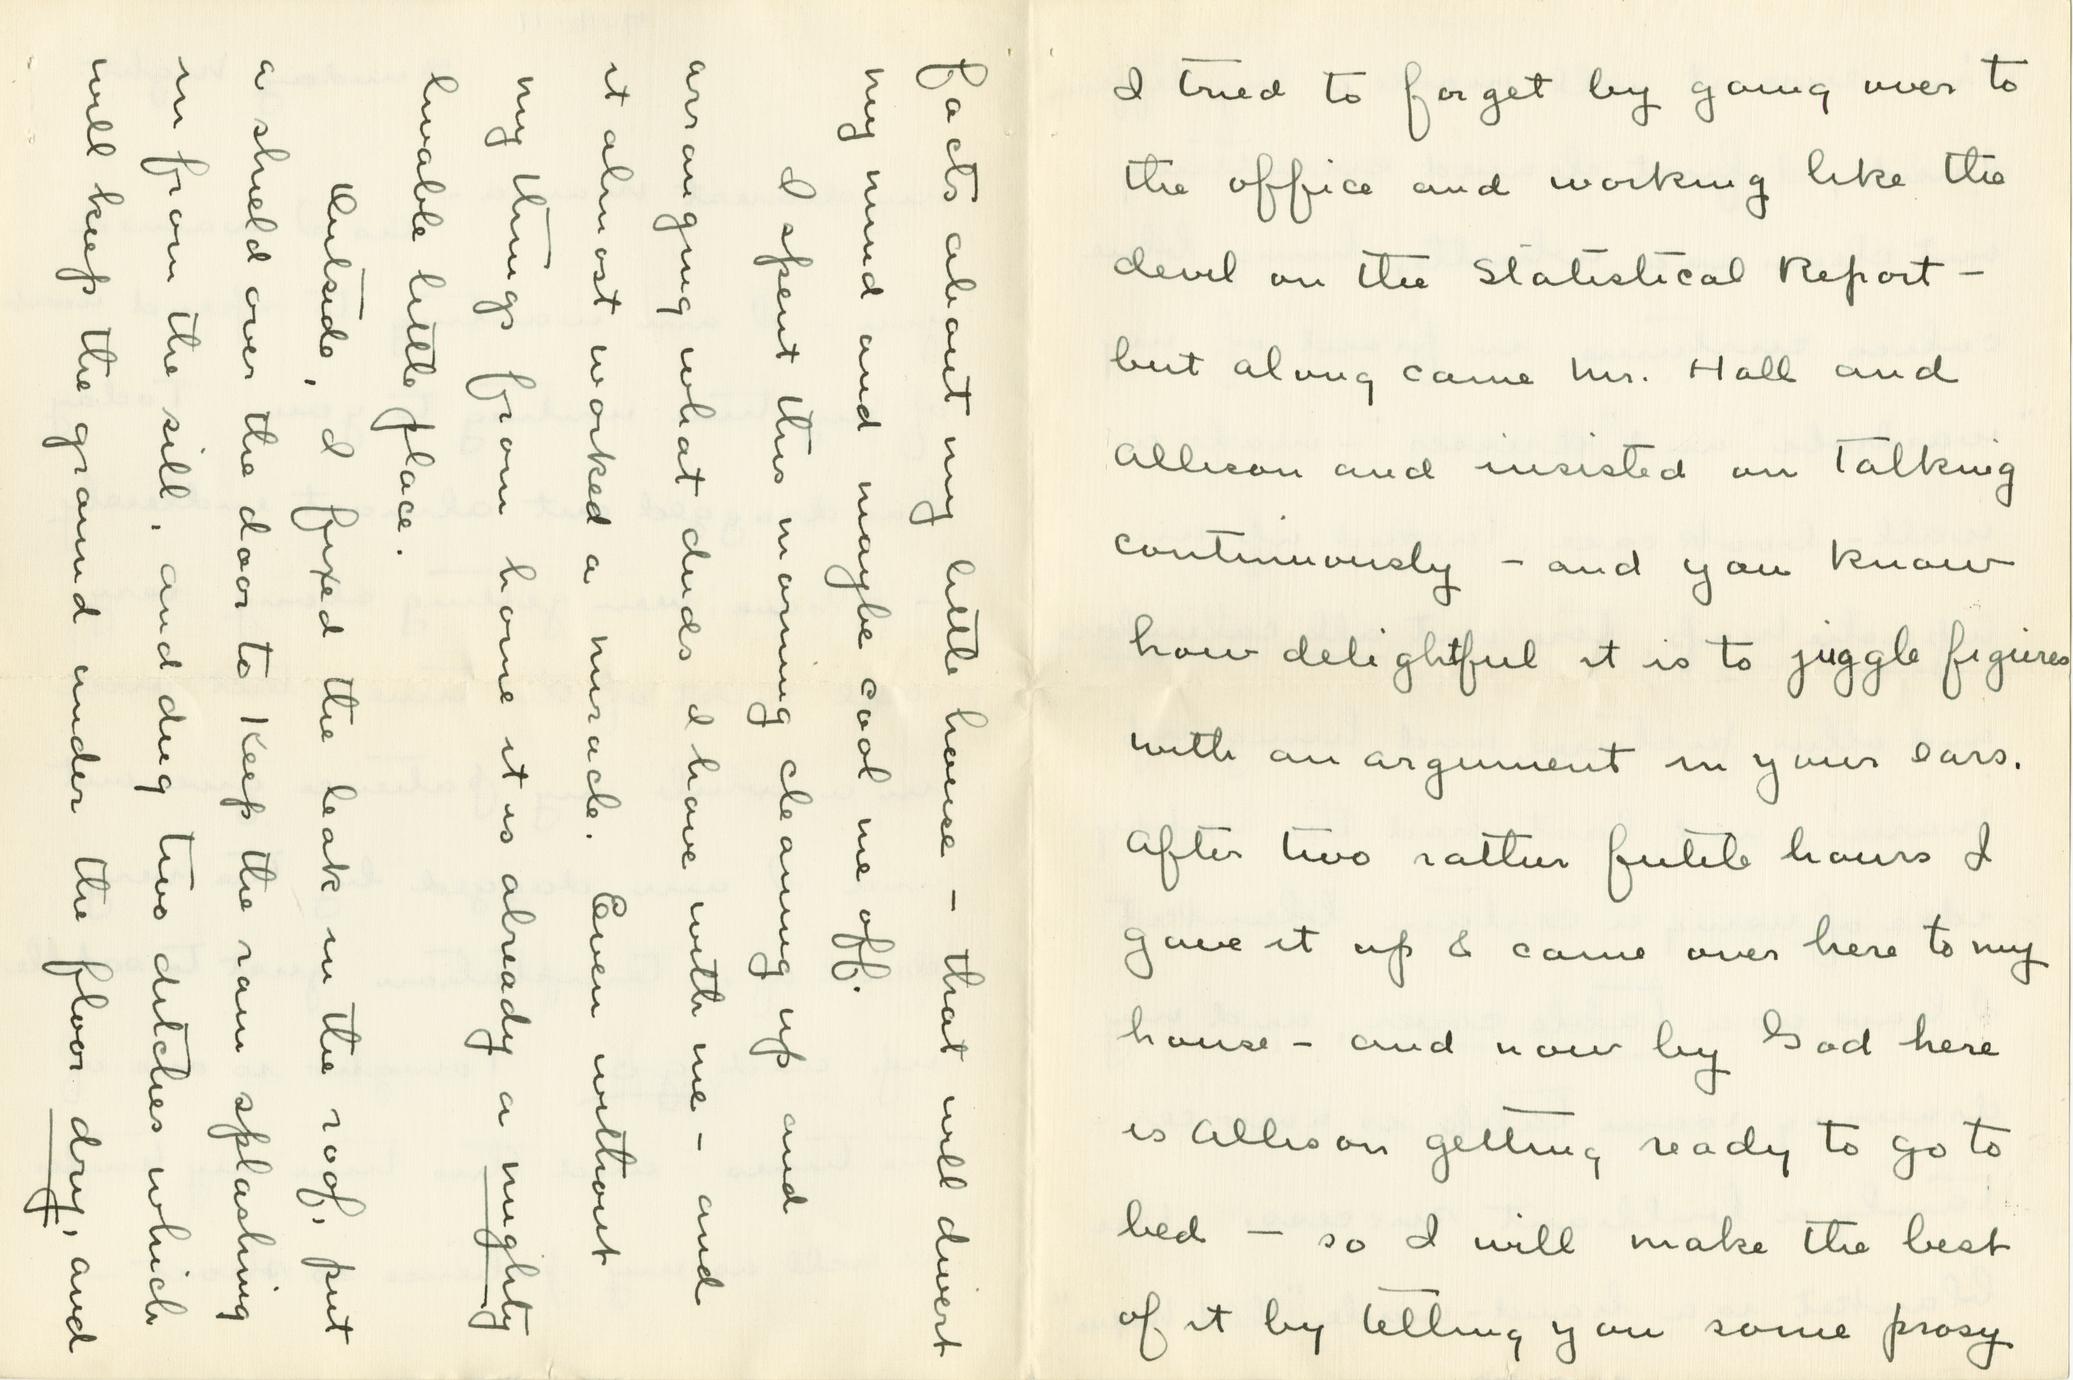 I tried to forget by going over to
the office and working like the
devil on the Statistical Report -
but along came Mr. Hall and
Allison and insisted on talking
continuously - and you know
how delightful it is to juggle figures
with an argument in your ears.
After two rather futile hours I
gave it up & came over here to my
house - and now by God here
is Allison getting ready to go to
bed - so I will make the best
of it by telling you some prosy
facts about my little house - that will divert
my mind and maybe cool me off.
I spent this morning cleaning up and
arranging what duds I have with me - and
it almost worked a miracle. Even without
my things from home it is already a mighty
livable little place.
Outside, I fixed the leak in the roof, put
a shield over the door to keep the rain splashing
in from the sill, and dug two ditches which
will keep the ground under the floor dry, and